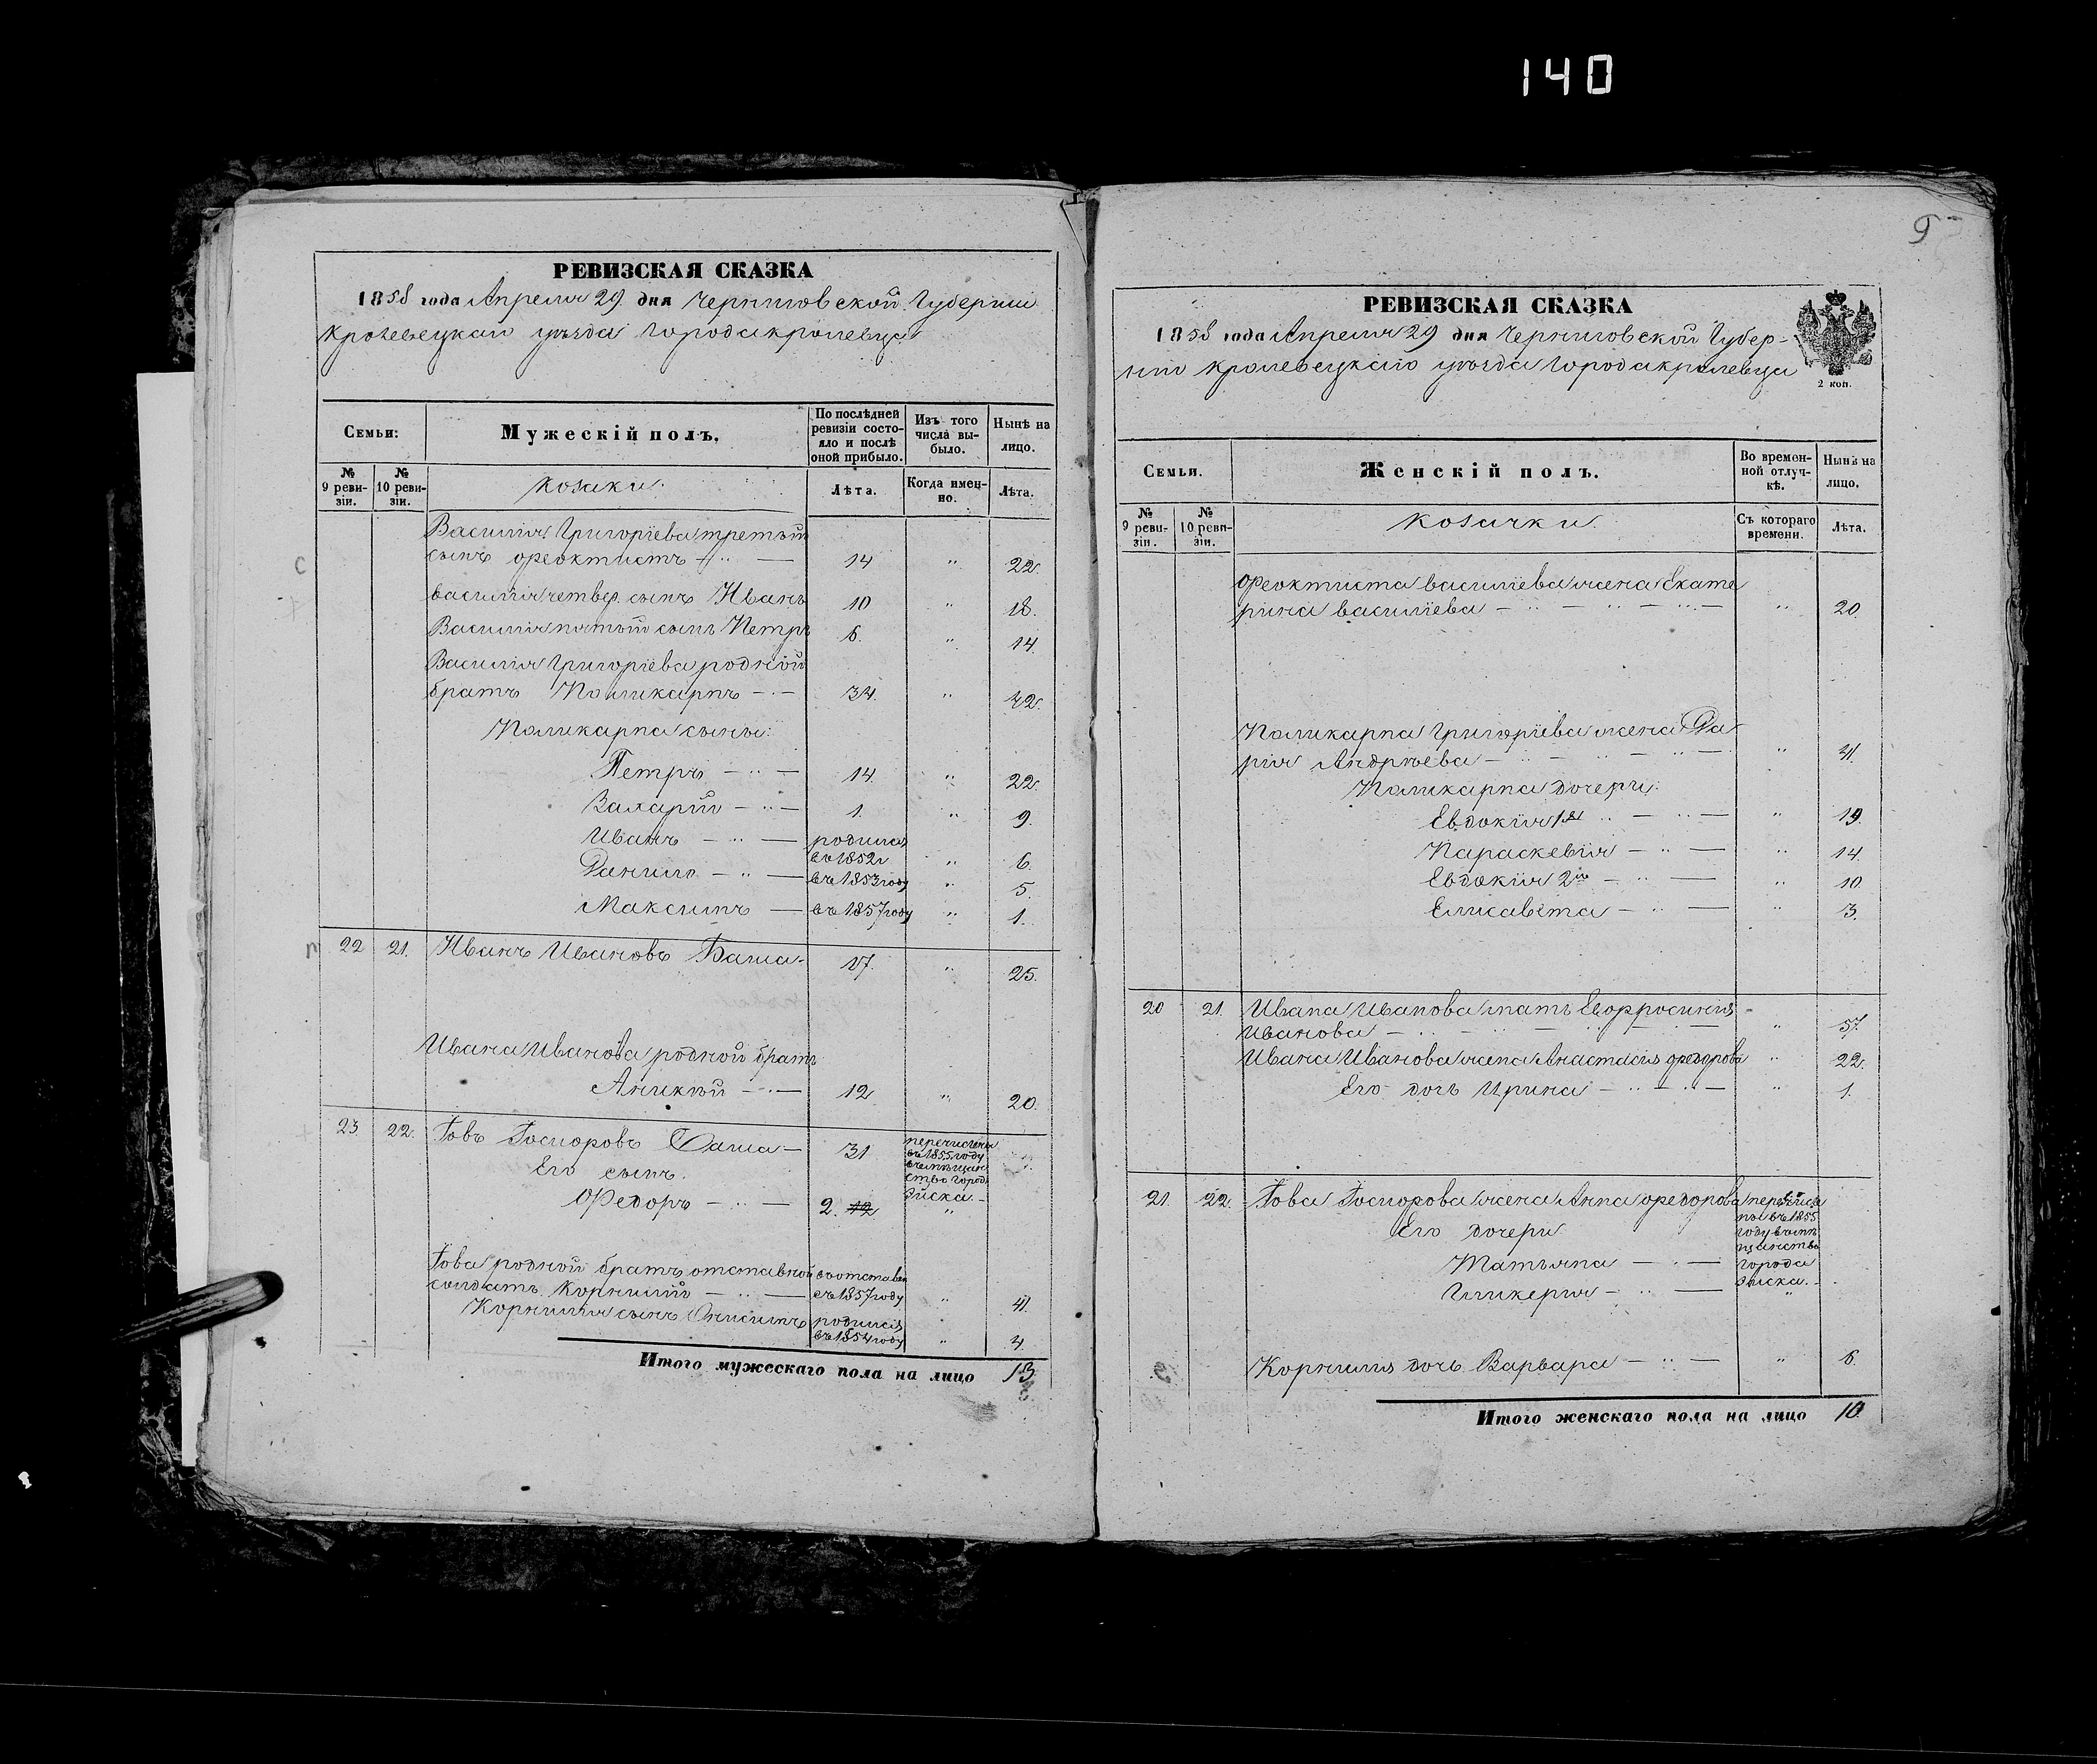 140
РЕВИЗСКАЯ СКАЗКА
1858 года Апреля 29 дня Черниговской Губернии
Кролевецкаго уѣзда Города Кролевца
Семьи:
Мужескій полъ.
По послѣдней ревизіи состояло и послѣ оной прибыло.
Изъ того числа выбыло.
Нынѣ на лицо.
№ 9 ревизіи.
№ 10 ревизіи.
Козаки.
Лѣта.
Когда именно.
Лѣта.
Василія Григоріева третій
сынъ Феоктистъ 14 " 22.
Василія четвер. сынъ Иванъ 10 " 18.
Василія пятый сынъ Петръ 6. " 14.
Василія Григоріева родной
братъ Поликарпъ 34. " 42.
Поликарпа сыны:
Петръ 14. " 22.
Захарій 1. " 9.
Иванъ родился въ 1852 г " 6.
Данило въ 1853 году " 5.
Максимъ въ 1857 году " 1.
22 21. Иванъ Ивановъ 17. " 25.
Ивана Иванова родной братъ
Аникѣй 12 " 20.
23 22. Іовъ 31 перечисленъ въ 1855 году въ мѣщанство город. Ейска
Его сынъ.
Федоръ 2. 12 "
Іова родной братъ отставной въ отставке
солдатъ Корнилій съ 1857 году " 41.
Корнилія сынъ Онисимъ родился въ 1854 году " 4.
Итого мужескаго пола на лицо 13
9
РЕВИЗСКАЯ СКАЗКА
1858 года Апреля 29 дня Черниговской Губер-
ніи Кролевецкаго уѣзда Города Кролевца
2 коп.
Семьи.
Женскій полъ.
Во временной отлучкѣ.
Нынѣ на лицо.
№ 9 ревизіи.
№ 10 ревизіи.
Козачки.
Съ котораго времени.
Лѣта.
Феоктиста Василіева жена Екате
рина Василіева " 20.
Поликарпа Григоріева жена Да
рія Андрѣева " 41.
Поликарпа дочери:
Евдокія 1я " 19.
Параскевія " 14.
Евдокія 2я " 10.
Елисавета " 3.
20 21. Ивана Иванова мать Евфросинія
Иванова " 57.
Ивана Иванова жена Анастасія Федорова " 22.
Его дочь Ирина " 1.
21. 22. Іова жена Анна Федорова перечислены въ 1855 году въ мѣщанство города Ейска.
Его дочери
Татьяна
Гликерія "
Корнилія дочь Варвара " 6.
Итого женскаго пола на лицо 10.